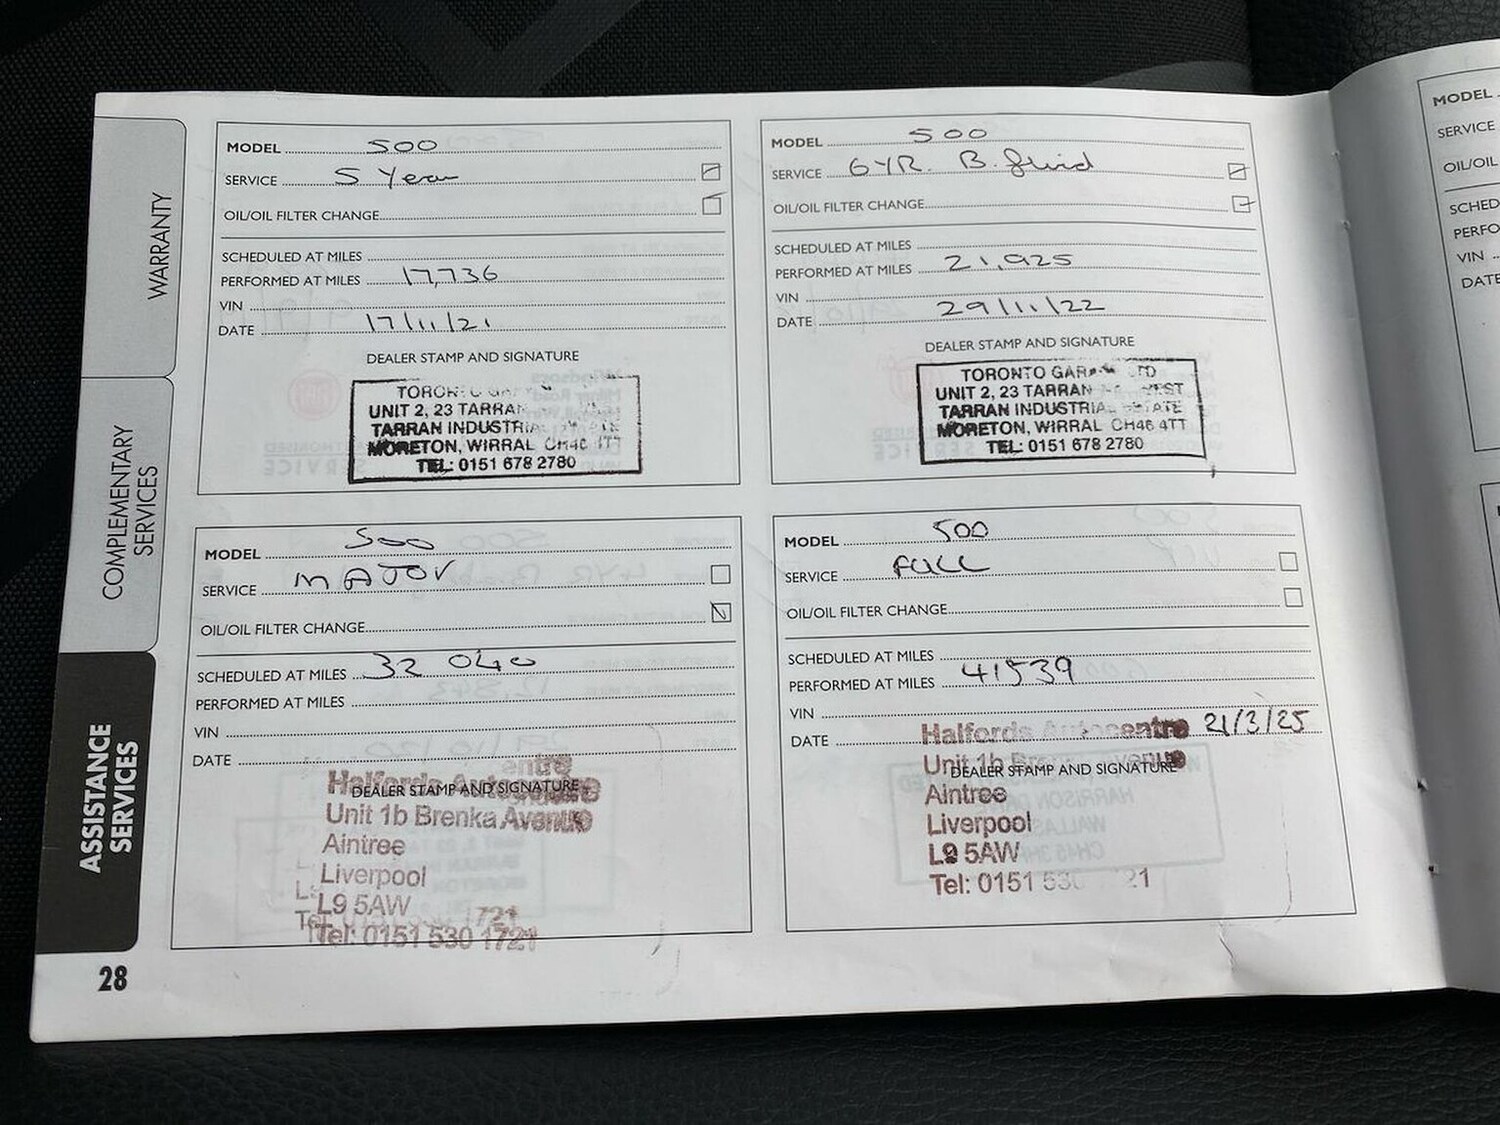 WARRANTY
COMPLEMENTARY
SERVICES
ASSISTANCE
SERVICES
28
MODEL 500
SERVICE 5 Year
OIL/OIL FILTER CHANGE
SCHEDULED AT MILES
PERFORMED AT MILES 17,736
VIN
DATE 17/11/21
DEALER STAMP AND SIGNATURE
UNIT 2, 23 TARRAN
TARRAN INDUSTRIAL
MORETON, WIRRAL CH46 4TT
TEL: 0151 678 2780
MODEL 500
SERVICE 6 YR. B. fluid
OIL/OIL FILTER CHANGE
SCHEDULED AT MILES
PERFORMED AT MILES 21,925
VIN
DATE 29/11/22
DEALER STAMP AND SIGNATURE
TORONTO GARAGE LTD
UNIT 2, 23 TARRAN WEST
TARRAN INDUSTRIAL ESTATE
MORETON, WIRRAL CH46 4TT
TEL: 0151 678 2780
MODEL 500
SERVICE MAJOR
OIL/OIL FILTER CHANGE
SCHEDULED AT MILES 32 040
PERFORMED AT MILES
VIN
DATE
Halfords Autocentre
DEALER STAMP AND SIGNATURE
Unit 1b Brenka Avenue
Aintree
Liverpool
L9 5AW
Tel: 0151 530 1721
MODEL 500
SERVICE FULL
OIL/OIL FILTER CHANGE
SCHEDULED AT MILES
PERFORMED AT MILES 41539
VIN
DATE 21/3/25
Halfords Autocentre
Unit 1b Brenka Avenue
DEALER STAMP AND SIGNATURE
Aintree
Liverpool
L9 5AW
Tel: 0151 530 21
MODEL
SERVICE
OIL/OIL
SCHED
PERFO
VIN
DATE